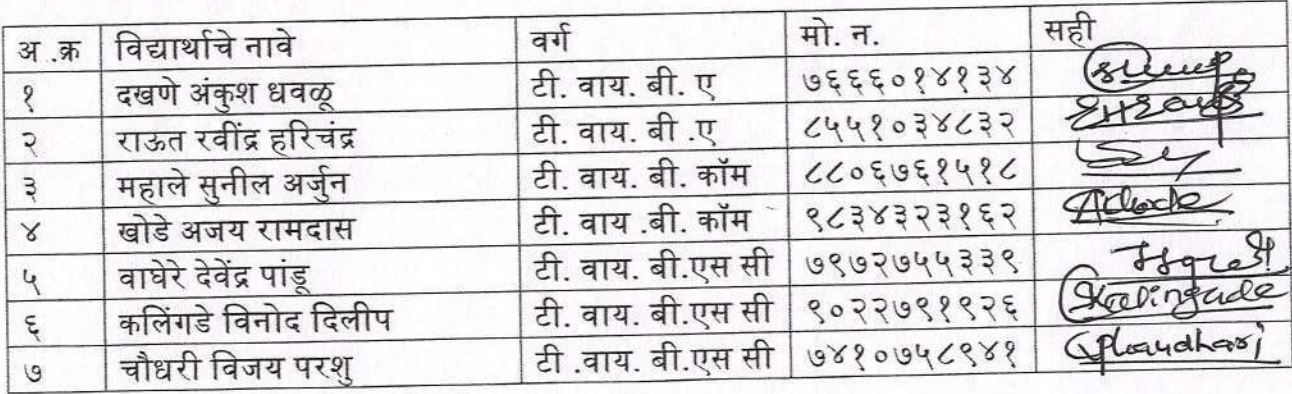 अ .क्र विद्यार्थाचे नावे वर्ग मो. न. सही
१ दखणे अंकुश धवळू टी. वाय. बी. ए ७६६६०१४१३४
२ राऊत रवींद्र हरिचंद्र टी. वाय. बी .ए ८५५१०३४८३२
३ महाले सुनील अर्जुन टी. वाय. बी. कॉम ८८०६७६१५१८
४ खोडे अजय रामदास टी. वाय .बी. कॉम ९८३४३२३१६२ AKhode
५ वाघेरे देवेंद्र पांडू टी. वाय. बी.एस सी ७९७२७५५३३९
६ कलिंगडे विनोद दिलीप टी. वाय. बी.एस सी ९०२२७९१९२६ Kalingade
७ चौधरी विजय परशु टी .वाय. बी.एस सी ७४१०७५८९४१